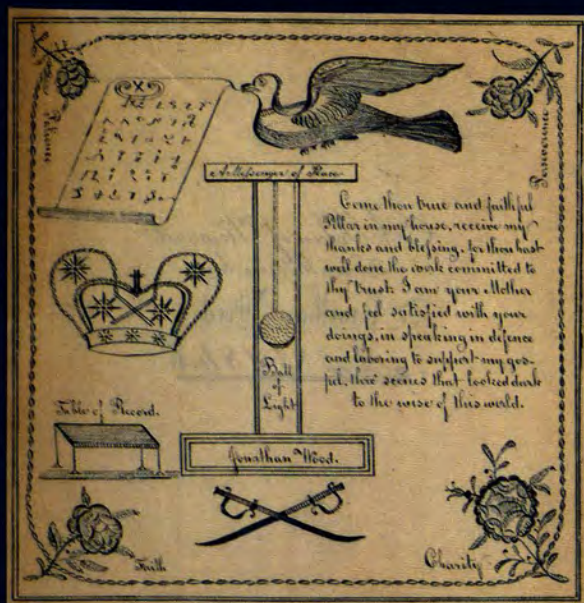 A Messenger of Peace
Come thou true and faithful
Pillar in my house, receive my
thanks and blessing, for thou hast
well done the work committed to
thy trust. I am your Mother
and feel satisfied with your
doings, in speaking in defence
and laboring to support my gos-
pel, thro' scenes that looked dark
to the wise of this world.
Ball
of
Light
Table of Record.
Jonathan Wood.
Faith
Charity